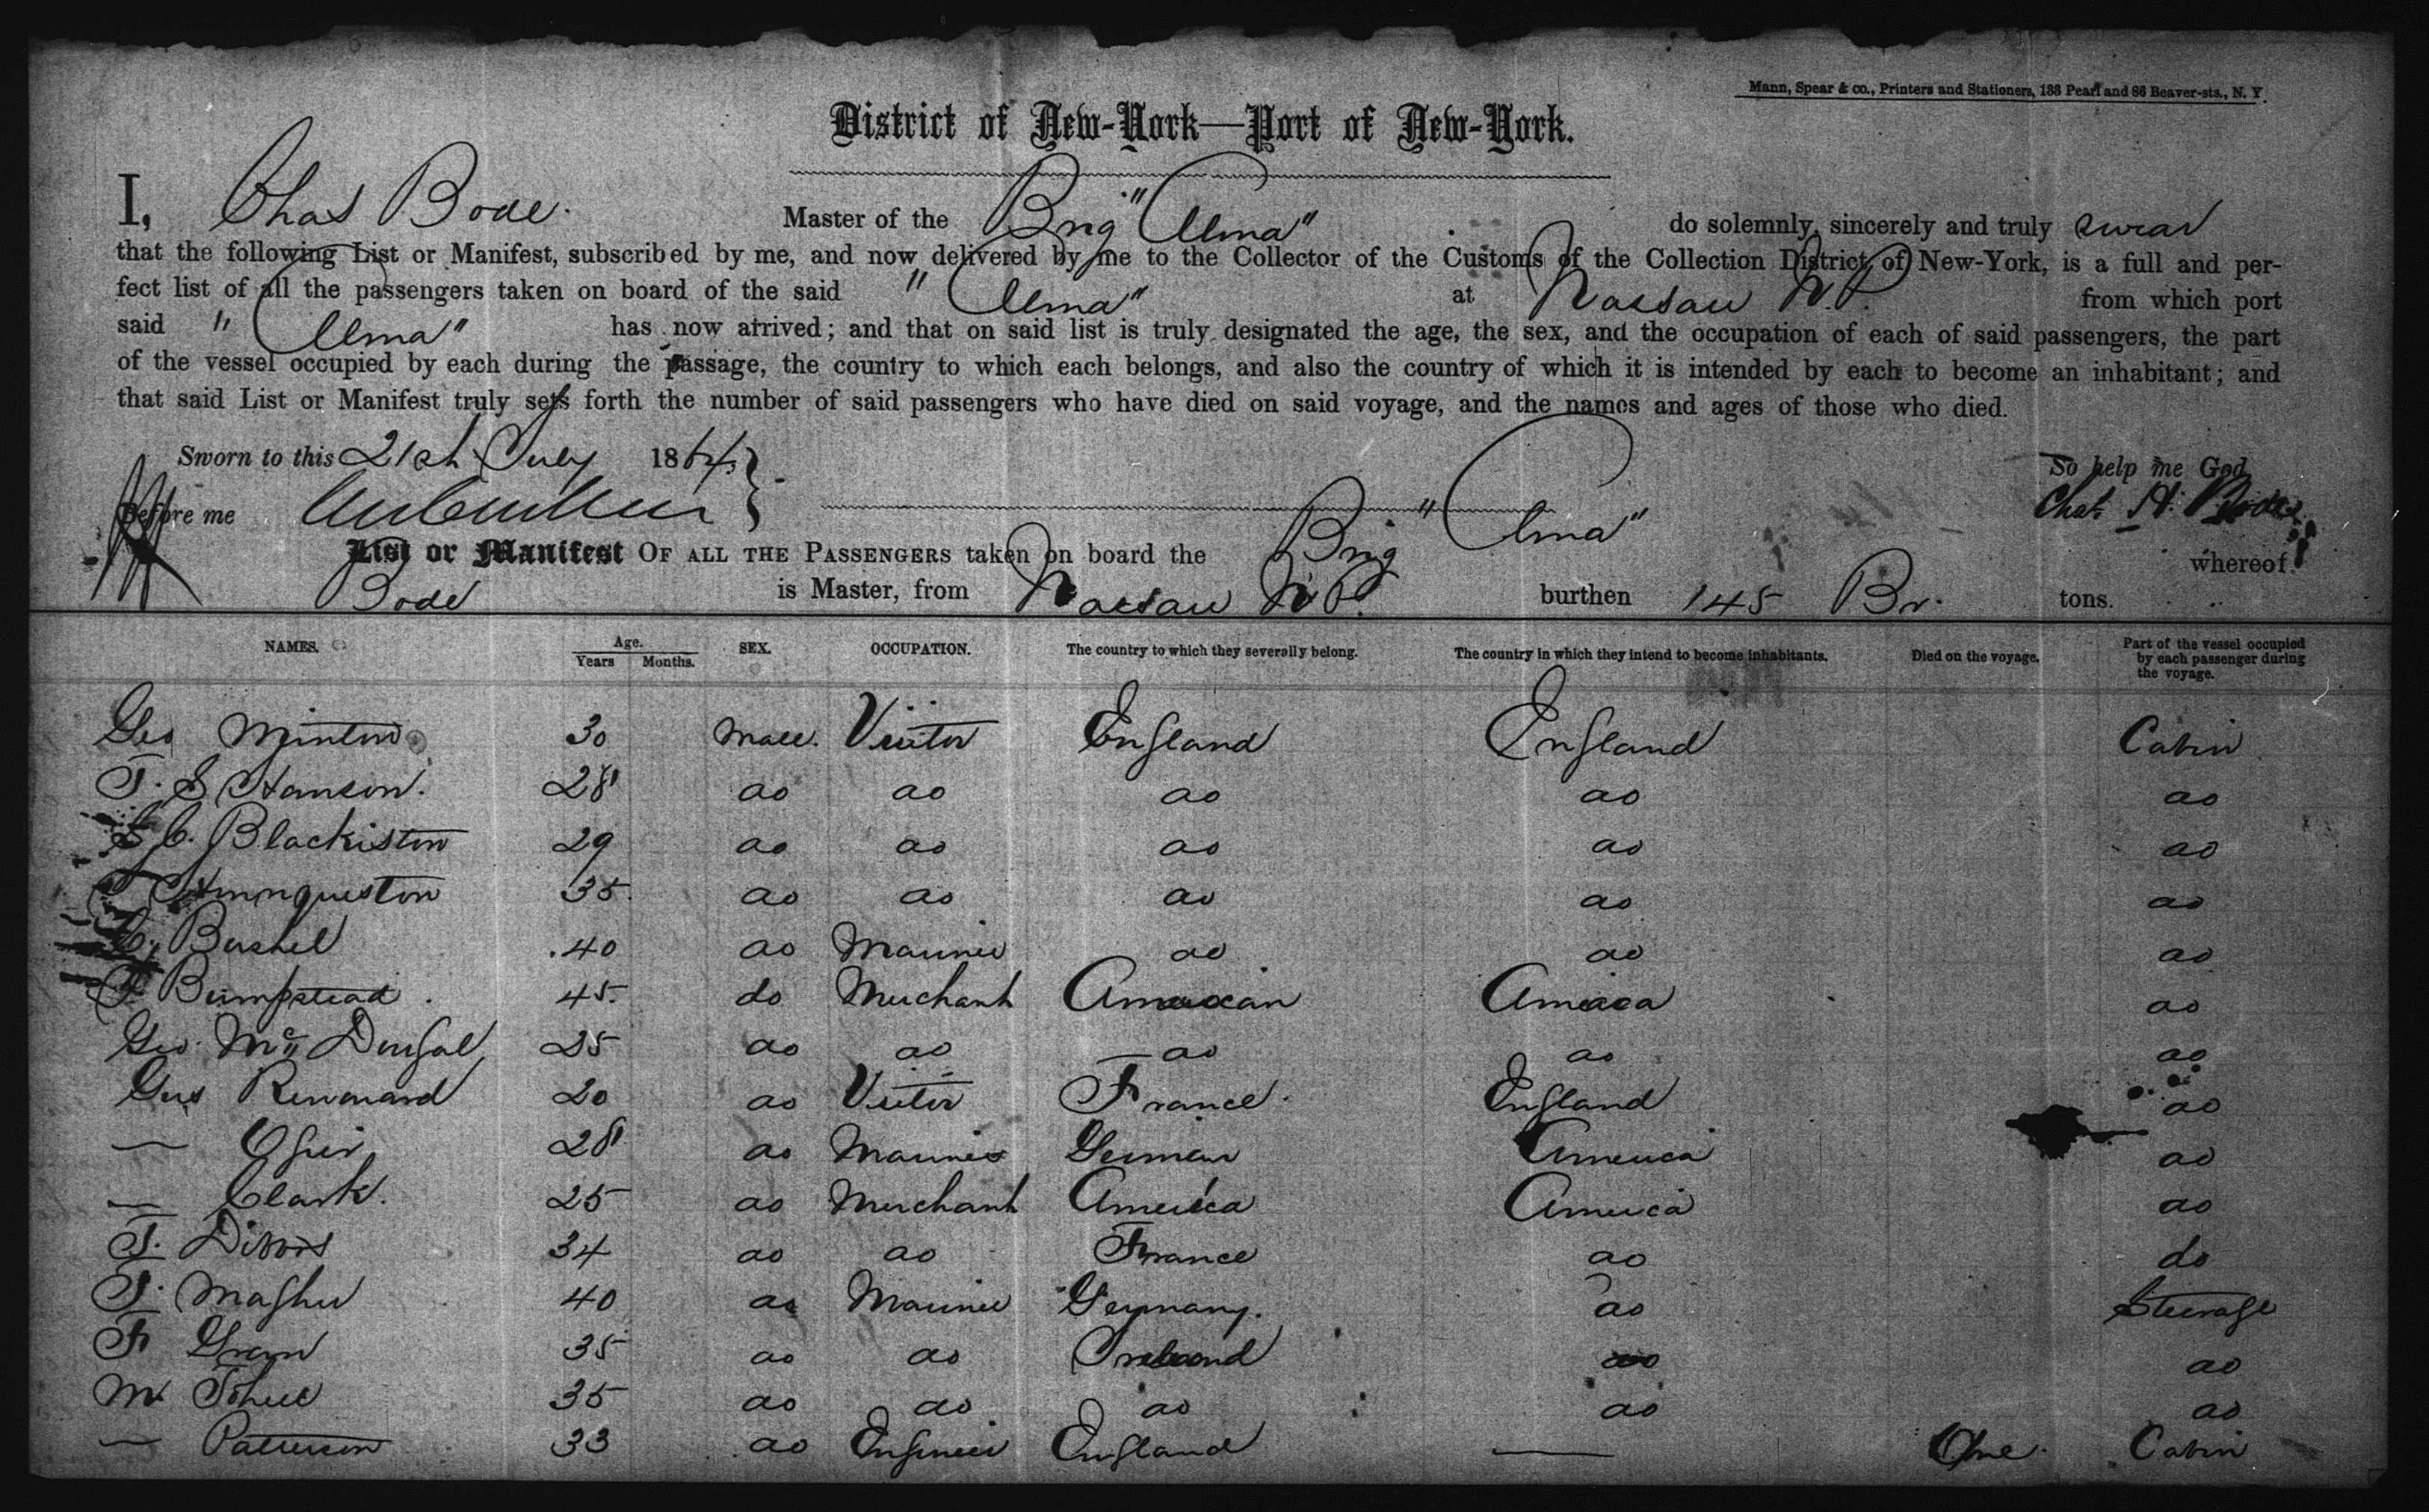 Mann, Spear & co., Printers and Stationers, 133 Pearl and 86 Beaver-sts., N. Y.
District of New-York—Port of New-York.
I, Chas Bode. Master of the Brig "Alma" do solemnly, sincerely and truly swear
that the following List or Manifest, subscribed by me, and now delivered by me to the Collector of the Customs of the Collection District of New-York, is a full and per-
fect list of all the passengers taken on board of the said "Alma" at Nassau N.P. from which port
said "Alma" has now arrived; and that on said list is truly designated the age, the sex, and the occupation of each of said passengers, the part
of the vessel occupied by each during the passage, the country to which each belongs, and also the country of which it is intended by each to become an inhabitant; and
that said List or Manifest truly sets forth the number of said passengers who have died on said voyage, and the names and ages of those who died.
Sworn to this 21st July 1864. So help me God,
Before me Chas H. Bode
List or Manifest OF ALL THE PASSENGERS taken on board the Brig "Alma" whereof
Bode is Master, from Nassau N.P. burthen 145 Br. tons.
NAMES. Age. Years Months. SEX. OCCUPATION. The country to which they severally belong. The country in which they intend to become inhabitants. Died on the voyage. Part of the vessel occupied by each passenger during the voyage.
Geo Minton 30 Male. Visitor England England Cabin
T. S Hanson. 28 do do do do do
C. Blackiston 29 do do do do do
35 do do do do do
Bushel 40 do Mariner do do do
Bumpstead. 45. do Merchant American America do
Geo. Mc Dougal 25 do do do do do
Gus 20 do Visitor France. England do
— Ogier 28 do Mariner German America do
— Clark. 25 do Merchant America America do
T. 34 do do France do do
T. 40 do Mariner Germany. do Steerage
F 35 do do Ireland do do
M 35 do do do do do
— Patterson 33 do Engineer England — One Cabin